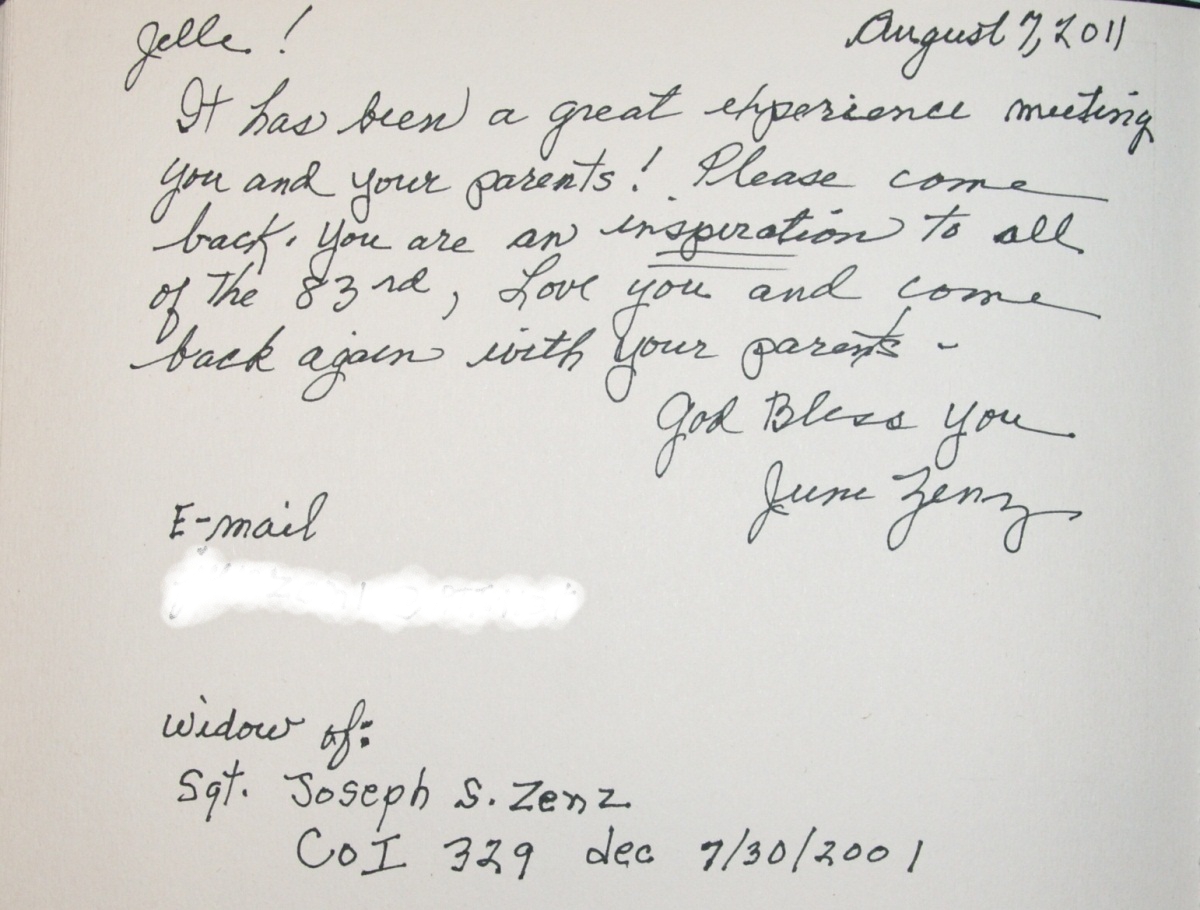 Jelle! August 7, 2011
It has been a great experience meeting
you and your parents! Please come
back. You are an inspiration to all
of the 83rd, Love you and come
back again with your parents -
God Bless You
June Zenz
E-mail
Widow of:
Sgt. Joseph S. Zenz
Co I 329 dec 7/30/2001